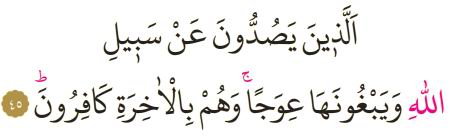 اَلَّذ۪ينَ يَصُدُّونَ عَنْ سَب۪يلِ
اللّٰهِ وَيَبْغُونَهَا عِوَجًاۚ وَهُمْ بِالْاٰخِرَةِ كَافِرُونَۜ ﴿٤٥﴾